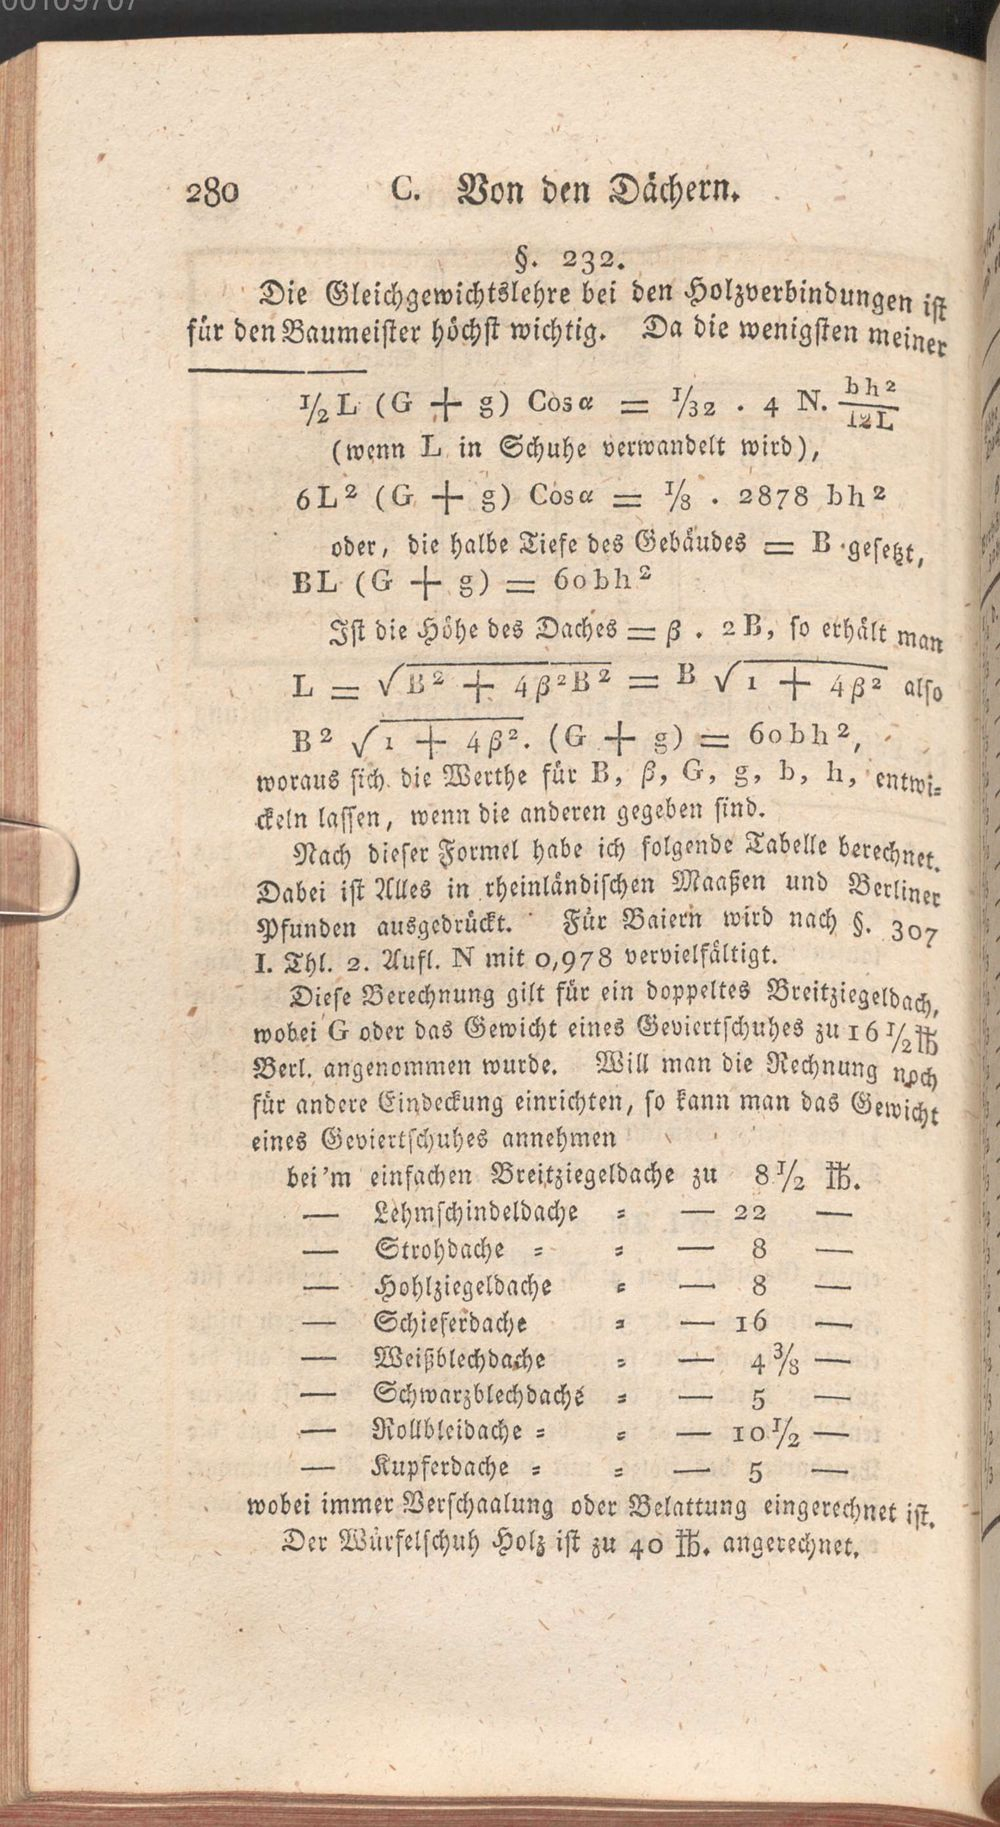 280 C. Von den Dächern.
§. 232.
Die Gleichgewichtslehre bei den Holzverbindungen ist
für den Baumeister höchst wichtig. Da die wenigsten meiner
1/2 L (G + g) Cos α = 1/32 . 4 N. bh²/12L
(wenn L in Schuhe verwandelt wird),
6L² (G + g) Cos α = 1/8 . 2878 bh²
oder, die halbe Tiefe des Gebäudes = B gesetzt,
BL (G + g) = 60bh²
Ist die Höhe des Daches = β . 2B, so erhält man
L = √B² + 4β²B² = B √1 + 4β² also
B² √1 + 4β². (G + g) = 60bh²,
woraus sich die Werthe für B, β, G, g, b, h, entwi-
ckeln lassen, wenn die anderen gegeben sind.
Nach dieser Formel habe ich folgende Tabelle berechnet.
Dabei ist Alles in rheinländischen Maaßen und Berliner
Pfunden ausgedrückt. Für Baiern wird nach §. 307
I. Thl. 2. Aufl. N mit 0,978 vervielfältigt.
Diese Berechnung gilt für ein doppeltes Breitziegeldach,
wobei G oder das Gewicht eines Geviertschuhes zu 16 1/2 ℔
Berl. angenommen wurde. Will man die Rechnung noch
für andere Eindeckung einrichten, so kann man das Gewicht
eines Geviertschuhes annehmen
bei'm einfachen Breitziegeldache zu 8 1/2 ℔.
— Lehmschindeldache = — 22 —
— Strohdache = = — 8 —
— Hohlziegeldache = — 8 —
— Schieferdache = — 16 —
— Weißblechdache = — 4 3/8 —
— Schwarzblechdache = — 5 —
— Rollbleidache = = — 10 1/2 —
— Kupferdache = = — 5 —
wobei immer Verschaalung oder Belattung eingerechnet ist.
Der Würfelschuh Holz ist zu 40 ℔. angerechnet.